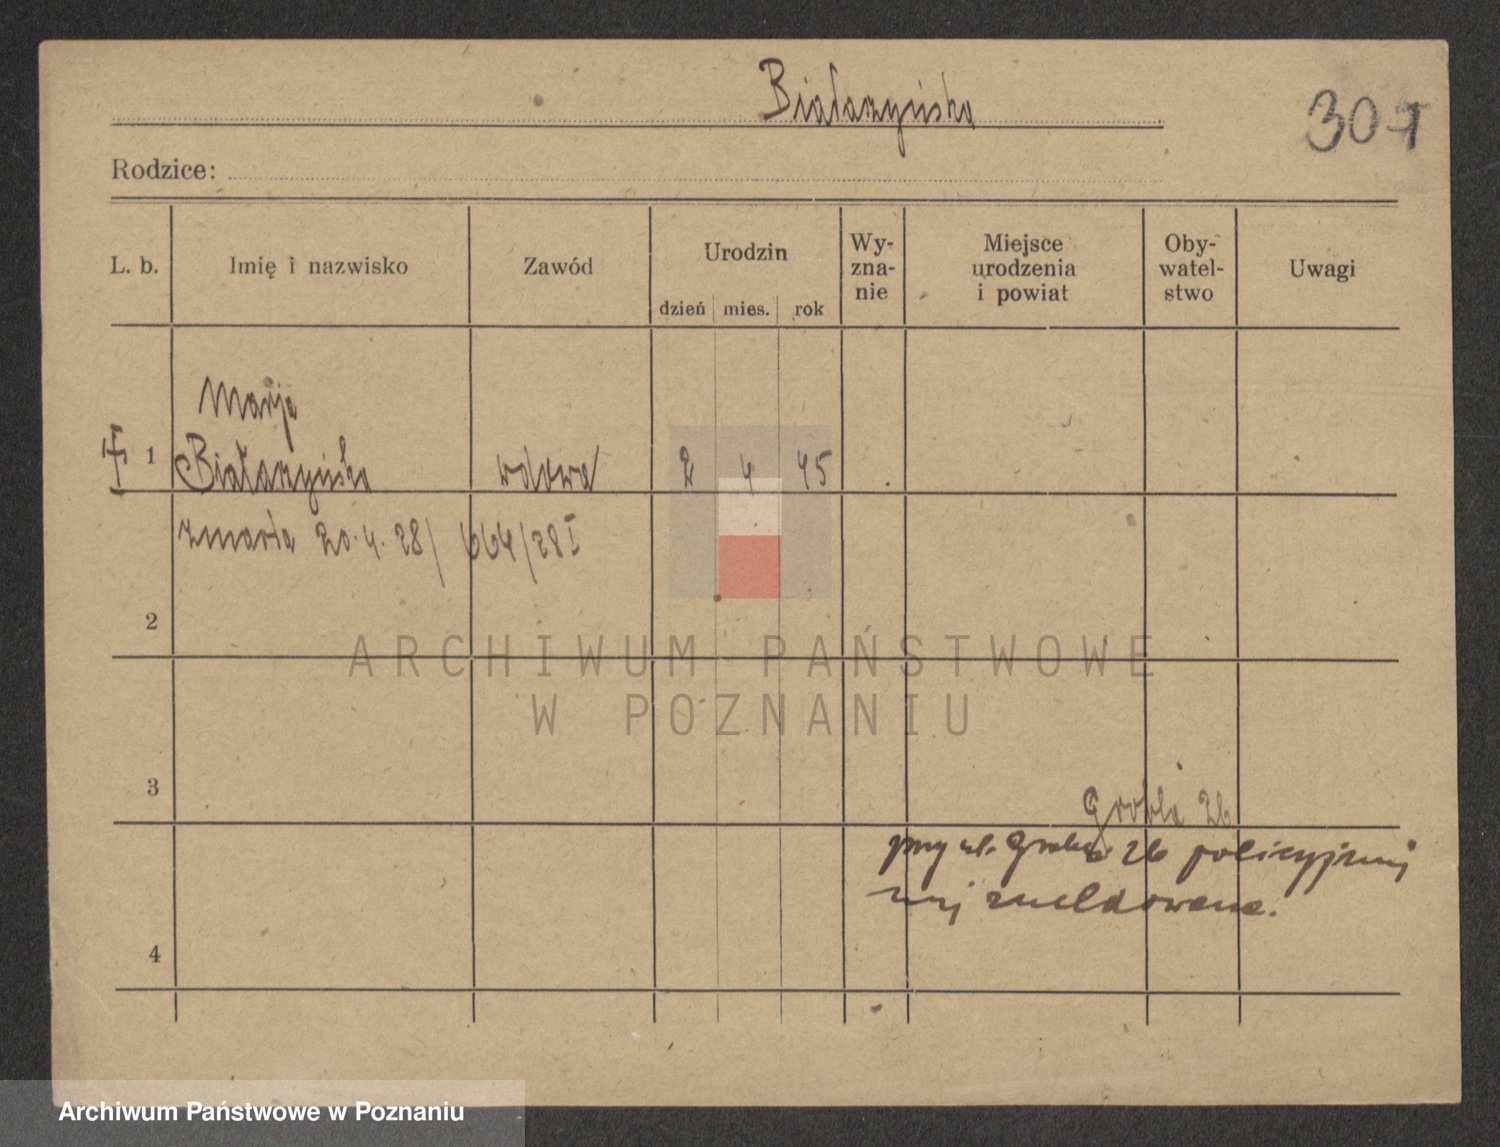 Białarzyńska
307
Rodzice:
L. b.
Imię i nazwisko
Zawód
Urodzin
dzień mies. rok
Wy-
zna-
nie
Miejsce
urodzenia
i powiat
Oby-
watel-
stwo
Uwagi
Marja
1 Białarzyńska wdowa 2 4 45
zmarła 20.4.28/ 664/28 I
2
ARCHIWUM PAŃSTWOWE
W POZNANIU
3
Grobla 26
przy ul. Grobla 26 policyjnie
nie zameldowana.
4
Archiwum Państwowe w Poznaniu